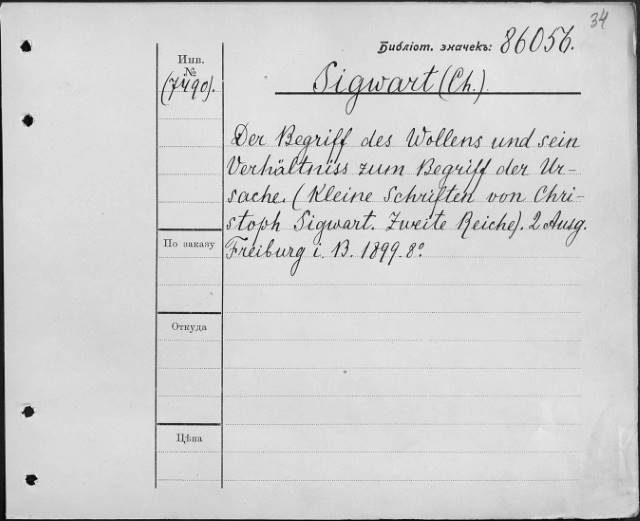 34
Библіот. значекъ: 86056.
Инв.
№
(7490).
Sigwart (Ch.)
Der Begriff des Wollens und sein
Verhältniss zum Begriff der Ur-
sache. (Kleine Schriften von Chri-
stoph Sigwart. Zweite Reiche). 2 Ausg.
Freiburg i. B. 1899. 8º
По заказу
Откуда
Цѣна